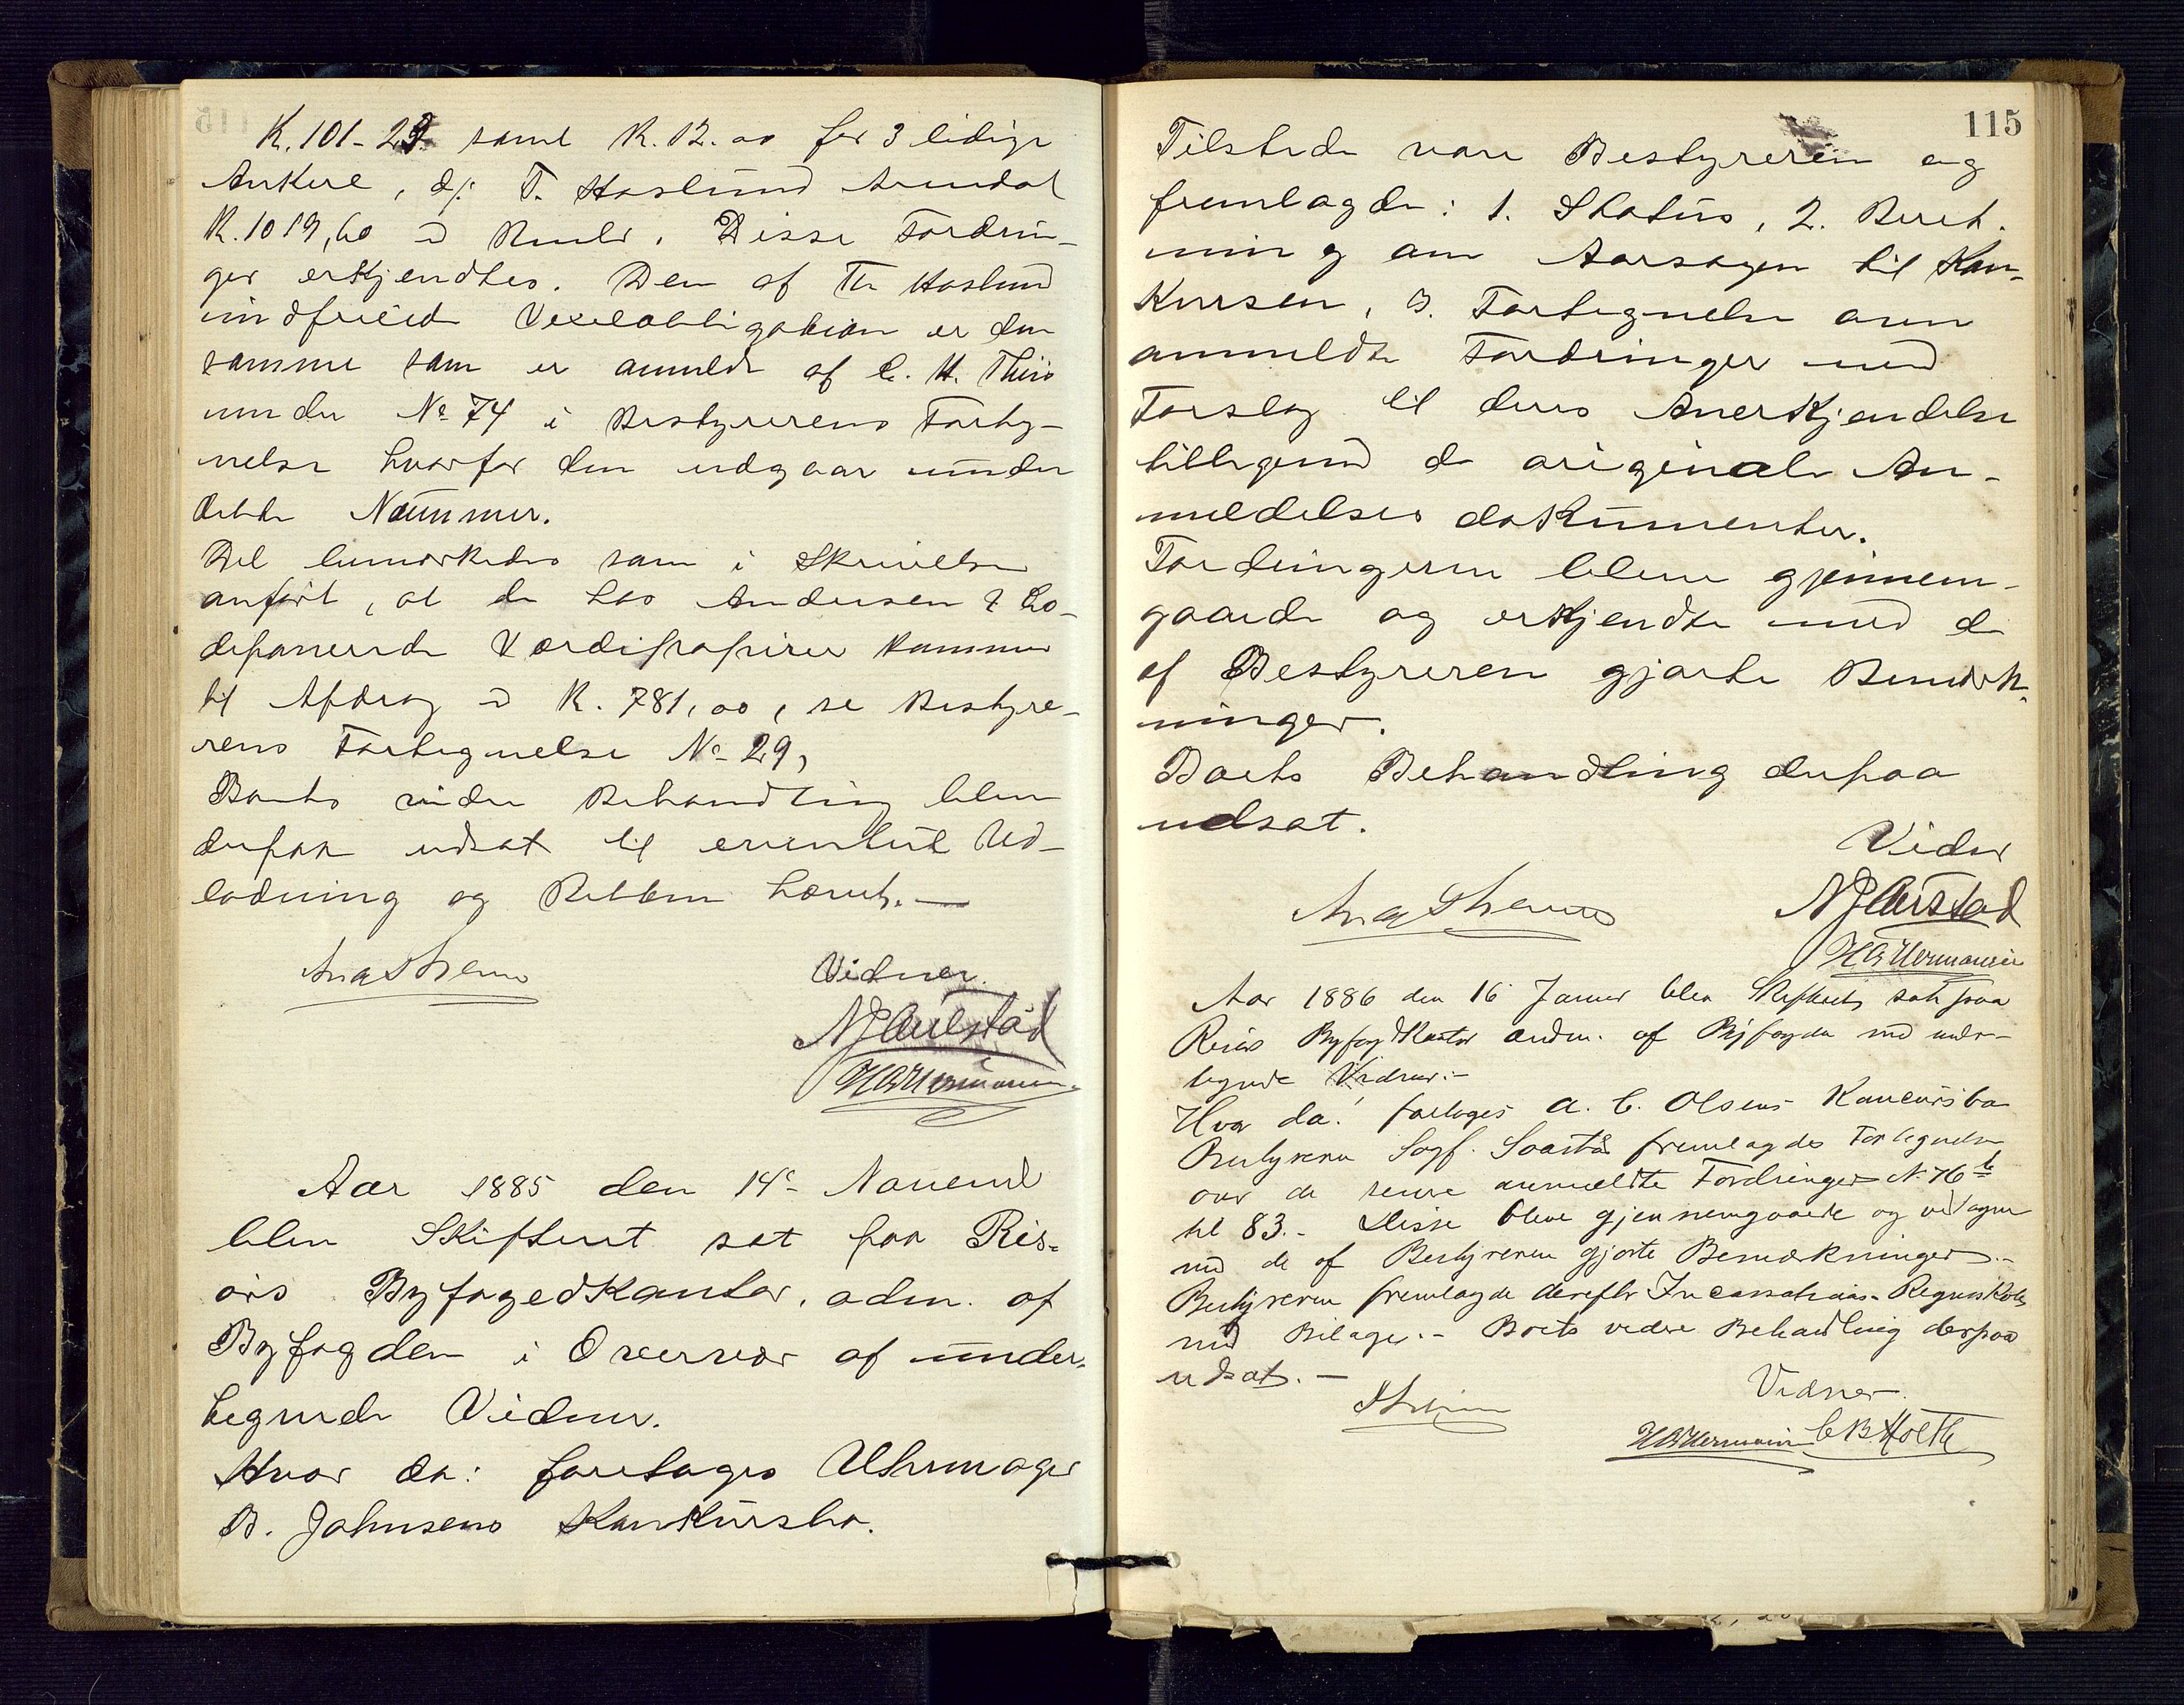 K. 101-29. samt K. 12.00 for 3 ledige
Ankere, d/: T. Haslund Arendal
K. 1019,60 Disse Fordrin-
ger erkjendtes. Den af Th Haslund
indfriede Vexelobligation er den
samme som er anmeldt af C. H. Thiis
under No 74 i Bestyrerens Forteg-
nelse hvorfor den udgaar under
dette Nummer.
Det bemærkedes som i Skrivelsen
anført, at de hos Andersen & Co
deponerede Værdipapirer kommer
til Afdrag K. 781,00, se Bestyre-
rens Fortegnelse No 29,
Boets videre Behandling blev
derpaa udsat til eventuel Ud-
lodning og Retten hævet. —
Vidner.
NJAulstad
HBHermansen
Aar 1885 den 14de Novembr
blev Skifteret sat paa Ris-
ørs Byfogedkontor, adm. af
Byfogden i Overvær af under-
tegnede Vidner.
Hvor da: foretoges Uhrmager
B. Johnsens Konkursbo.
115
Tilstede var Bestyreren og
fremlagde: 1. Status, 2. Beret-
ning om Aarsagen til Kon-
kursen, 3. Fortegnelse over
anmeldte Fordringer med
Forslag til deres Anerkjendelse
tilligemed de originale An-
meldelses dokumenter.
Fordringerne bleve gjennem-
gaaede og erkjendte med de
af Bestyreren gjorte Bemærk-
ninger.
Boets Behandling derpaa
udsat.
Vidner
NJAulstad
HBHermansen
Aar 1886 den 16 Januar blev Skifteret sat paa
Risørs Byfogdkontor adm. af Byfogden med under-
tegnede Vidner.-
Hvor da: foretoges A. C. Olsens Konkursbo
Bestyreren Sagf. fremlagde Fortegnelse
over de senere anmeldte Fordringer No 76
til 83.- Disse bleve gjennemgaaede og vedtagne
med de af Bestyreren gjorte Bemærkninger.-
Bestyreren fremlagde derefter Incassations-Regnskab
med Bilage.- Boets videre Behandling derpaa
udsat. —
Vidner
HBHermansen C.B. Holth